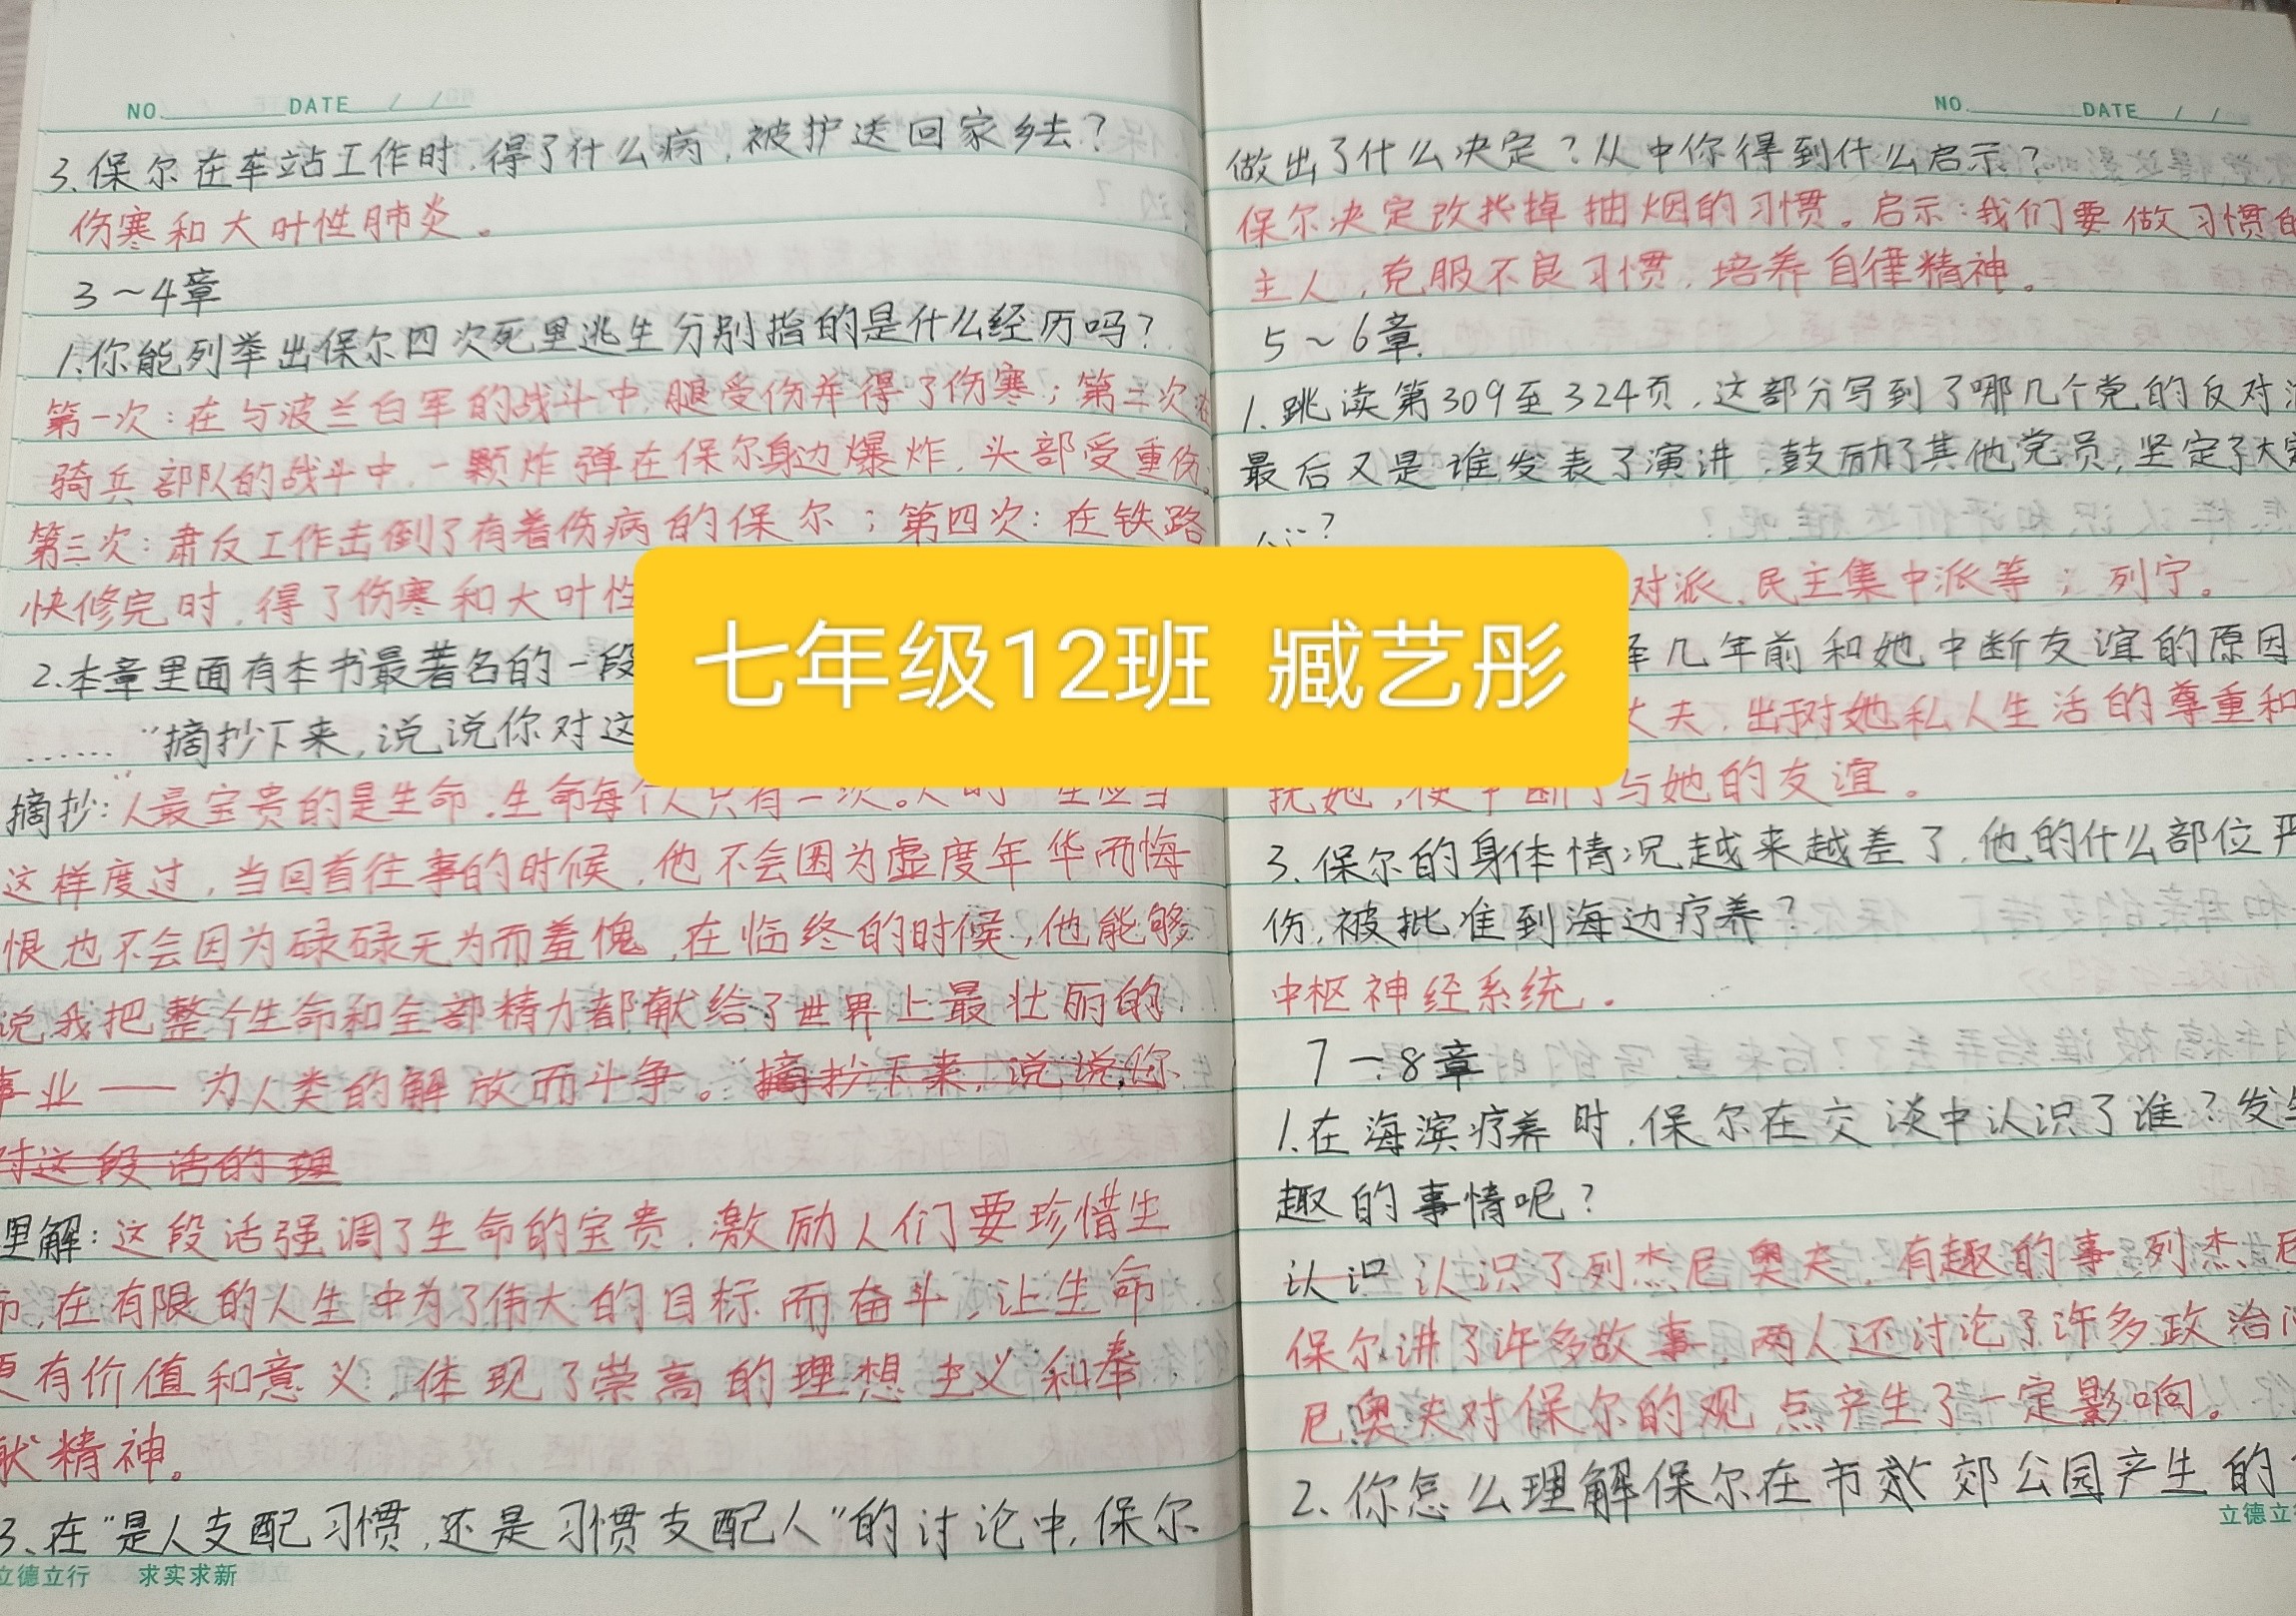 NO. DATE / /
3.保尔在车站工作时,得了什么病,被护送回家乡去?
伤寒和大叶性肺炎。
3～4章
1.你能列举出保尔四次死里逃生分别指的是什么经历吗?
第一次:在与波兰白军的战斗中,腿受伤并得了伤寒;第二次
骑兵部队的战斗中,一颗炸弹在保尔身边爆炸,头部受重伤
第三次:肃反工作击倒了有着伤病的保尔;第四次:在铁路
快修完时,得了伤寒和大叶性
2.本章里面有本书最著名的一段
……"摘抄下来,说说你对这
摘抄:人最宝贵的是生命.生命每个人只有一次。人的一生应当
这样度过,当回首往事的时候,他不会因为虚度年华而悔
恨也不会因为碌碌无为而羞愧,在临终的时候,他能够
说,我把整个生命和全部精力都献给了世界上最壮丽的
事业——为人类的解放而斗争。"摘抄下来,说说你
对这段话的理
理解:这段话强调了生命的宝贵,激励人们要珍惜生
命,在有限的人生中为了伟大的目标而奋斗,让生命
更有价值和意义,体现了崇高的理想主义和奉
献精神。
3.在"是人支配习惯,还是习惯支配人"的讨论中,保尔
立德立行 求实求新
NO. DATE / /
做出了什么决定?从中你得到什么启示?
保尔决定改掉抽烟的习惯。启示:我们要做习惯的
主人,克服不良习惯,培养自律精神。
5～6章
1.跳读第309至324页,这部分写到了哪几个党的反对派
最后又是谁发表了演讲,鼓励了其他党员,坚定了大家
?
对派、民主集中派等;列宁。
几年前和她中断友谊的原因
丈夫,出于对她私人生活的尊重和
扰她,便中断了与她的友谊。
3.保尔的身体情况越来越差了,他的什么部位严
伤,被批准到海边疗养?
中枢神经系统.
7－8章
1.在海滨疗养时,保尔在交谈中认识了谁?发生
趣的事情呢?
认识 认识了列杰尼奥夫,有趣的事:列杰尼
保尔讲了许多故事,两人还讨论了许多政治问
尼奥夫对保尔的观点产生了一定影响。
2.你怎么理解保尔在市郊公园产生的
立德立
七年级12班 臧艺彤